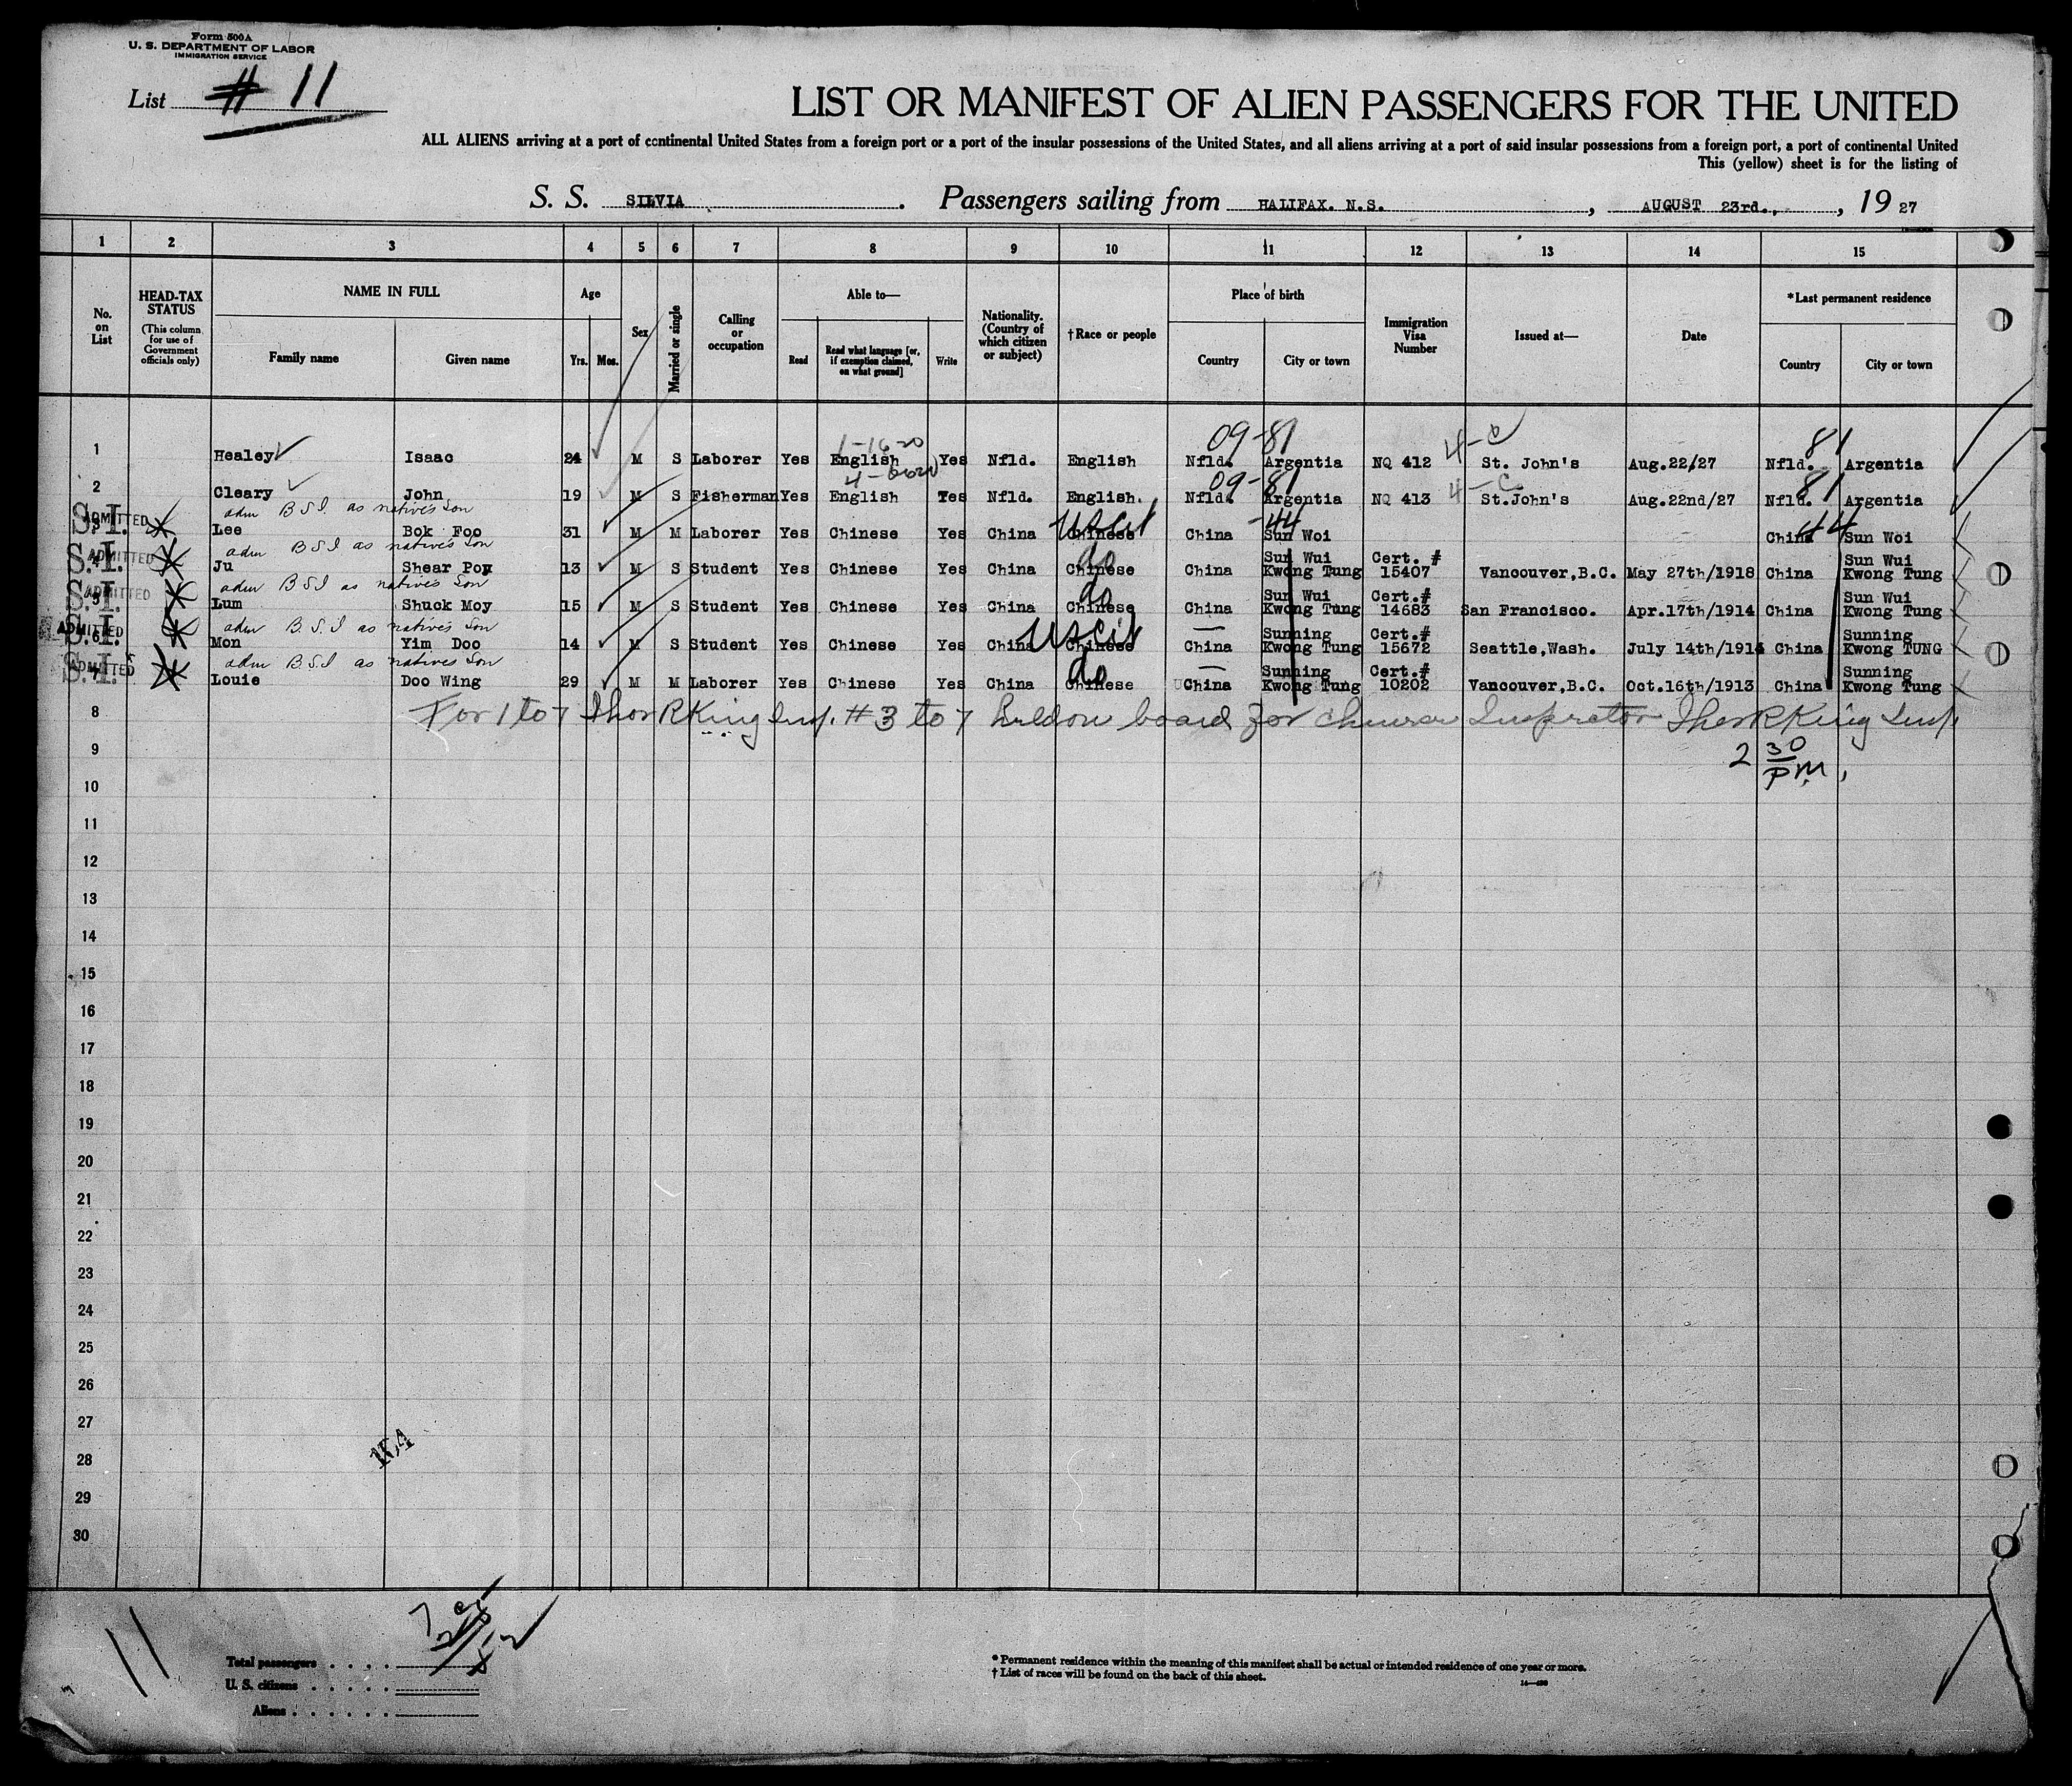 Form 500A
U. S. DEPARTMENT OF LABOR
IMMIGRATION SERVICE
List # 11
LIST OR MANIFEST OF ALIEN PASSENGERS FOR THE UNITED
ALL ALIENS arriving at a port of continental United States from a foreign port or a port of the insular possessions of the United States, and all aliens arriving at a port of said insular possessions from a foreign port, a port of continental United
This (yellow) sheet is for the listing of
S. S. SILVIA. Passengers sailing from HALIFAX. N.S., AUGUST 23rd., 19 27
1 2 3 4 5 6 7 8 9 10 11 12 13 14 15
No. on List
HEAD-TAX STATUS (This column for use of Government officials only)
NAME IN FULL
Family name Given name
Age
Yrs. Mos.
Sex
Married or single
Calling or occupation
Able to—
Read Read what language [or, if exemption claimed, on what ground] Write
Nationality. (Country of which citizen or subject)
†Race or people
Place of birth
Country City or town
Immigration Visa Number
Issued at—
Date
*Last permanent residence
Country City or town
1-16-20 09-81 4-C 81
1 Healey Isaac 24 M S Laborer Yes English Yes Nfld. English Nfld. Argentia NQ 412 St. John's Aug.22/27 Nfld. Argentia
09-81 4-C 81
2 Cleary John 19 M S Fisherman Yes English Yes Nfld. English. Nfld. Argentia NQ 413 St.John's Aug.22nd/27 Nfld. Argentia
adm B.S.I. as native's son
S.I. ADMITTED 3 Lee Bok Foo 31 M M Laborer Yes Chinese Yes China Chinese US Cit China -44 Sun Woi China 44 Sun Woi
adm B S I as native's son
S.I. ADMITTED 4 Ju Shear Poy 13 M S Student Yes Chinese Yes China Chinese do China Sun Wui Kwong Tung Cert. # 15407 Vancouver,B.C. May 27th/1918 China Sun Wui Kwong Tung
adm B S I as native's son
S.I. ADMITTED 5 Lum Shuck Moy 15 M S Student Yes Chinese Yes China Chinese do China Sun Wui Kwong Tung Cert.# 14683 San Francisco. Apr.17th/1914 China Sun Wui Kwong Tung
adm B.S.I as native's son
S.I. ADMITTED 6 Mon Yim Doo 14 M S Student Yes Chinese Yes China Chinese US Cit China Sunning Kwong Tung Cert.# 15672 Seattle,Wash. July 14th/1914 China Sunning Kwong TUNG
adm B.S.I as native's son
S.I. ADMITTED 7 Louie Doo Wing 29 M M Laborer Yes Chinese Yes China Chinese do China Sunning Kwong Tung Cert.# 10202 Vancouver,B.C. Oct.16th/1913 China Sunning Kwong Tung
8 For 1 to 7 Thos R King Insp. # 3 to 7 held on board for chinese Inspector Thos R King Insp
9 2 30 PM,
10
11
12
13
14
15
16
17
18
19
20
21
22
23
24
25
26
27
28
29
30
11
Total passengers
U. S. citizens
Aliens
* Permanent residence within the meaning of this manifest shall be actual or intended residence of one year or more.
† List of races will be found on the back of this sheet.